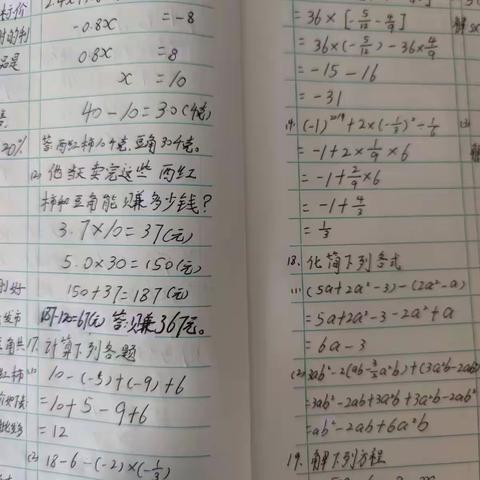 -0.8x = -8
0.8x = 8
x = 10
40-10=30(千克)
答:西红柿10千克,豆角30千克。
(2) 他当天卖完这些西红
柿和豆角能赚多少钱?
3.7×10=37(元)
5.0×30=150(元)
150+37=187(元)
187-120=67(元) 答:赚367元。
17.计算下列各题
(1) 10-(-5)+(-9)+6
=10+5-9+6
=12
(2) 18-6-(-2)×(-1/3)
=36×[-5/12-4/9]
=36×(-5/12)-36×4/9
=-15-16
=-31
(-1)^2019+2×(-1/3)²÷1/6
=-1+2×1/9×6
=-1+2/9×6
=-1+4/3
=1/3
18.化简下列各式
(1) (5a+2a²-3)-(2a²-a)
=5a+2a²-3-2a²+a
=6a-3
(2) 3ab²-2(ab-3/2a²b)+(3a²b-2ab²
=3ab²-2ab+3a²b+3a²b-2ab²
=ab²-2ab+6a²b
19.解下列方程